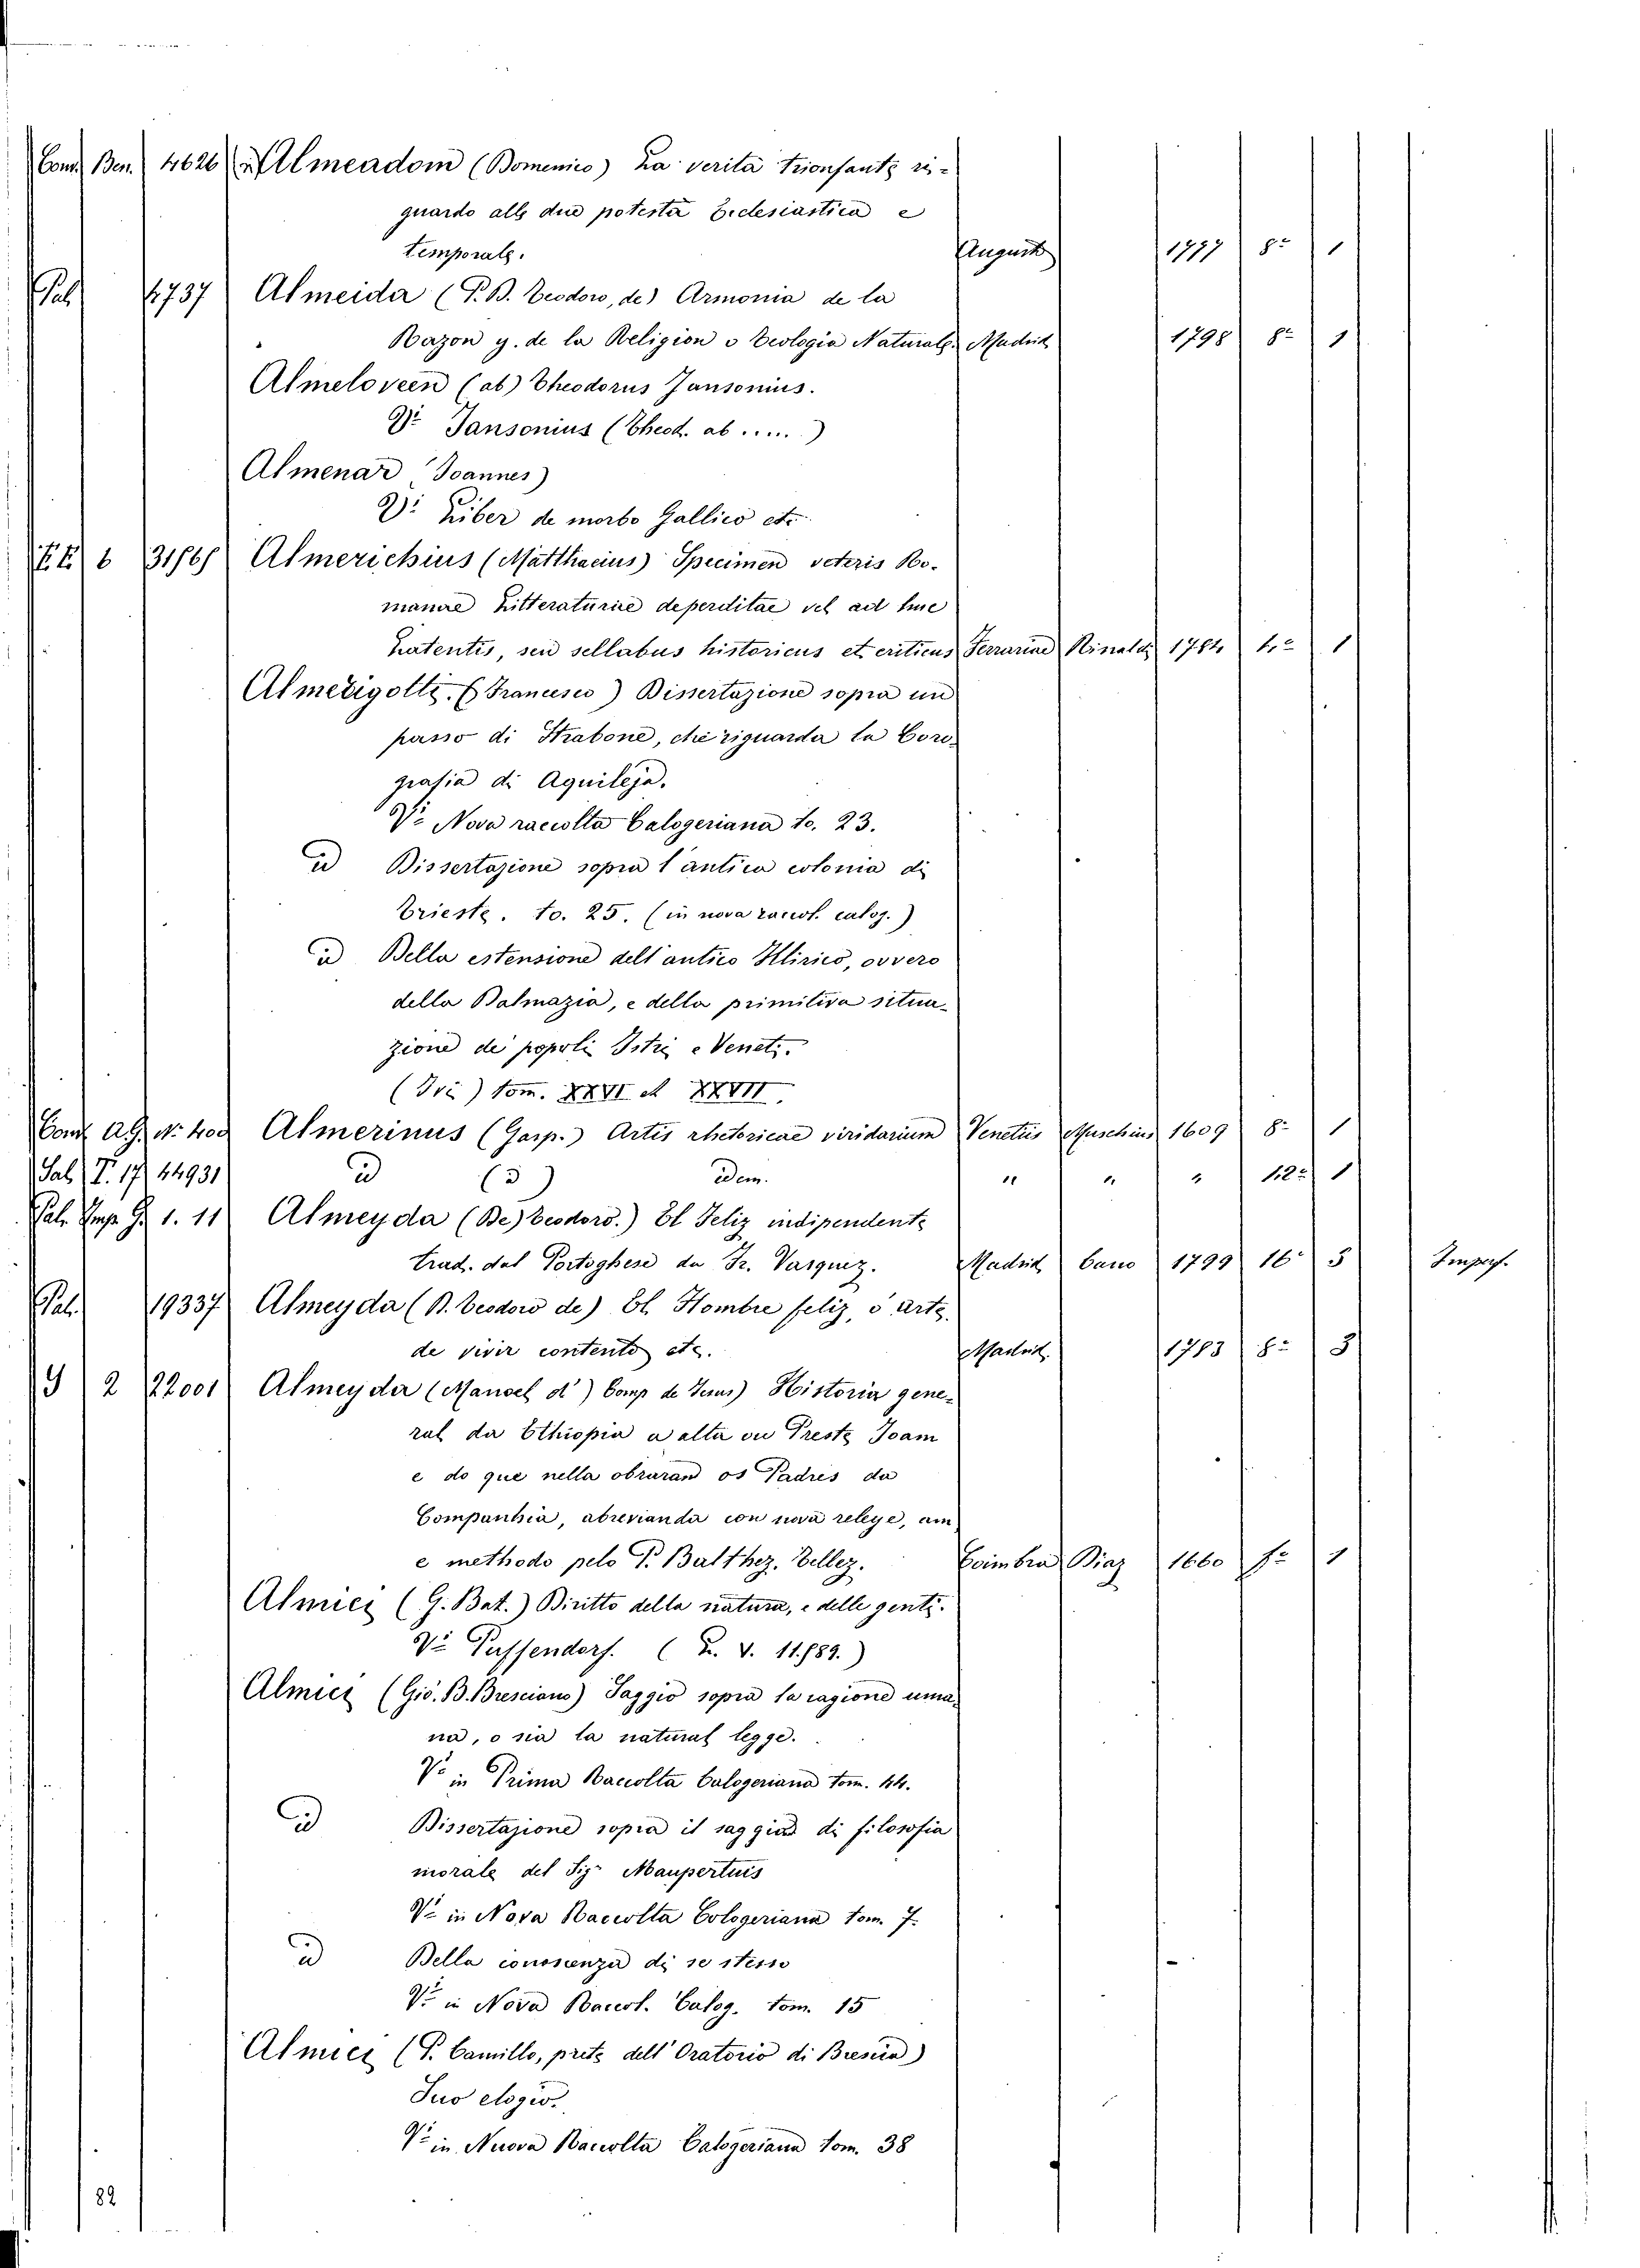 Conv. Ben. 4626 Almeadom (Domenico) La verità trionfante ri-
guardo alle due potestà Ecclesiastica e
temporale. Augusta 1787 8º 1
Pal. 4737 Almeida (P. D. Teodoro, de) Armonia de la
Razon y. de la Religion o Teologia Naturale. Madrid 1798 8º 1
Almeloveen (ab) Theodorus Jansonius.
Vi Jansonius (Theod. ab ......)
Almenar (Joannes)
Vi Liber de morbo Gallico etc.
6 31868 Almerichius (Matthaeius) Specimen veteris Ro-
manae Litteraturae deperditae vel ad huc
Latentis, seu sellabus historicus et criticus Ferrariae Rinaldi 1784 4º 1
Almerigotti. (Francesco) Dissertazione sopra un
passo di Strabone, che riguarda la Coro-
grafia di Aquileja.
Vi Nova raccolta Calogeriana to. 23.
id Dissertazione sopra l'antica colonia di
Trieste. to. 25. (in nova raccol. calog.)
id Della estensione dell'antico Illirico, ovvero
della Dalmazia, e della primitiva situa-
zione de popoli Istri e Veneti.
(Ivi) tom. XXVI et XXVII.
Conv. A.G. Nº 400 Almerinus (Gasp.) Artis rhetoricae viridarium Venetiis Muschius 1609 8º 1
Sal. T. 17 44931 id (3) idem. " " " 12º 1
Pal. Imp. G. 1. 11 Almeyda (De) Teodoro.) El Feliz indipendente
trad. dal Portoghese da Fr. Vasquez. Madrid Cano 1799 16º 5 Imperf.
Pal. 19337 Almeyda (D. Teodoro de) El Hombre feliz, ò arte
de vivir contento etc. Madrid. 1783 8º 3
G 2 22001 Almeyda (Manoel d') Comp de Jesus) Historia gene-
ral da Ethiopia a alta ou Preste Joam
e do que nella obraran os Padres da
Companhia, abrevianda con nova releye, am
e methodo pelo P. Balthez. Tellez. Coimbra Diaz 1660 fº 1
Almici (G. Bat.) Diritto della natura, e delle genti.
Vi Puffendorf. (L. V. 11889.)
Almici (Gio. B. Bresciano) Saggio sopra la ragione uma-
na, o sia la natural legge.
Vi in Prima Raccolta Calogeriana tom. 44.
id Dissertazione sopra il saggio di filosofia
morale del Sigr Maupertuis
Vi in Nova Raccolta Cologeriana tom. 7.
id Della conoscenza di se stesso
Vi in Nova Raccol. Calog. tom. 15
Almici (P. Camillo, prete dell' Oratorio di Brescia)
Suo elogio.
Vi in Nuova Raccolta Calogeriana tom. 38
82